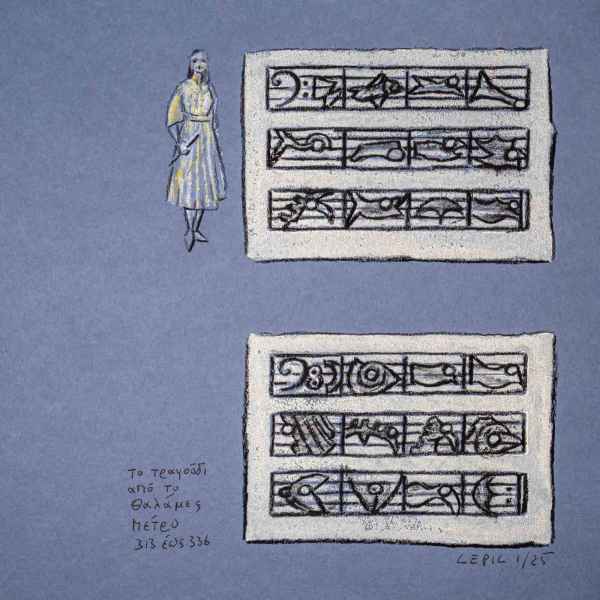 το τραγούδι
από το
θαλάμες
μέτρο
313 έως 336
LEPIL 1/25